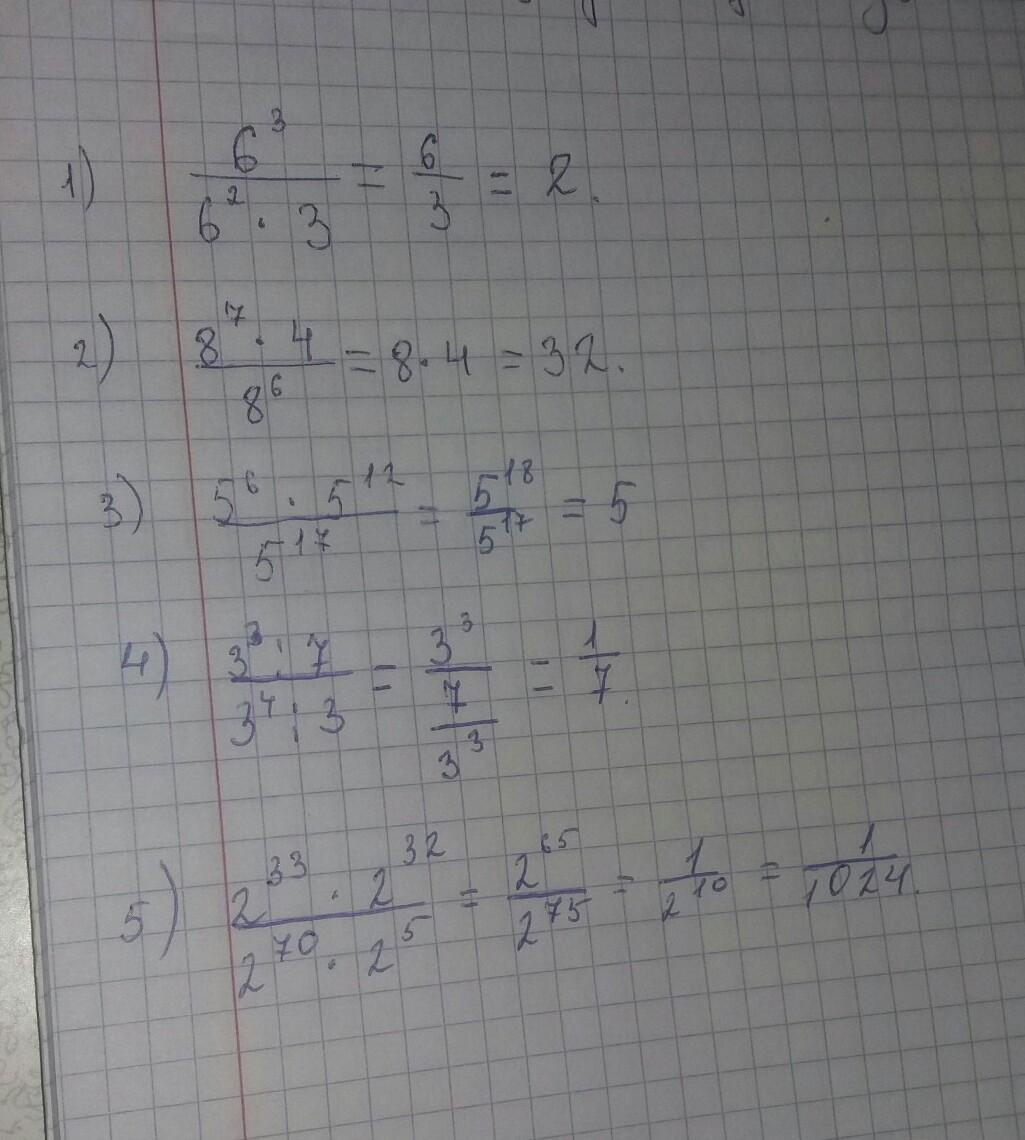 1) 6^3 / (6^2 · 3) = 6/3 = 2.
2) (8^7 · 4) / 8^6 = 8 · 4 = 32.
3) (5^6 · 5^12) / 5^17 = 5^18 / 5^17 = 5
4) (3^3 : 7) / (3^4 : 3) = 3^3 / 7 / 3^3 = 1/7.
5) (2^33 · 2^32) / (2^70 · 2^5) = 2^65 / 2^75 = 1 / 2^10 = 1/1024.